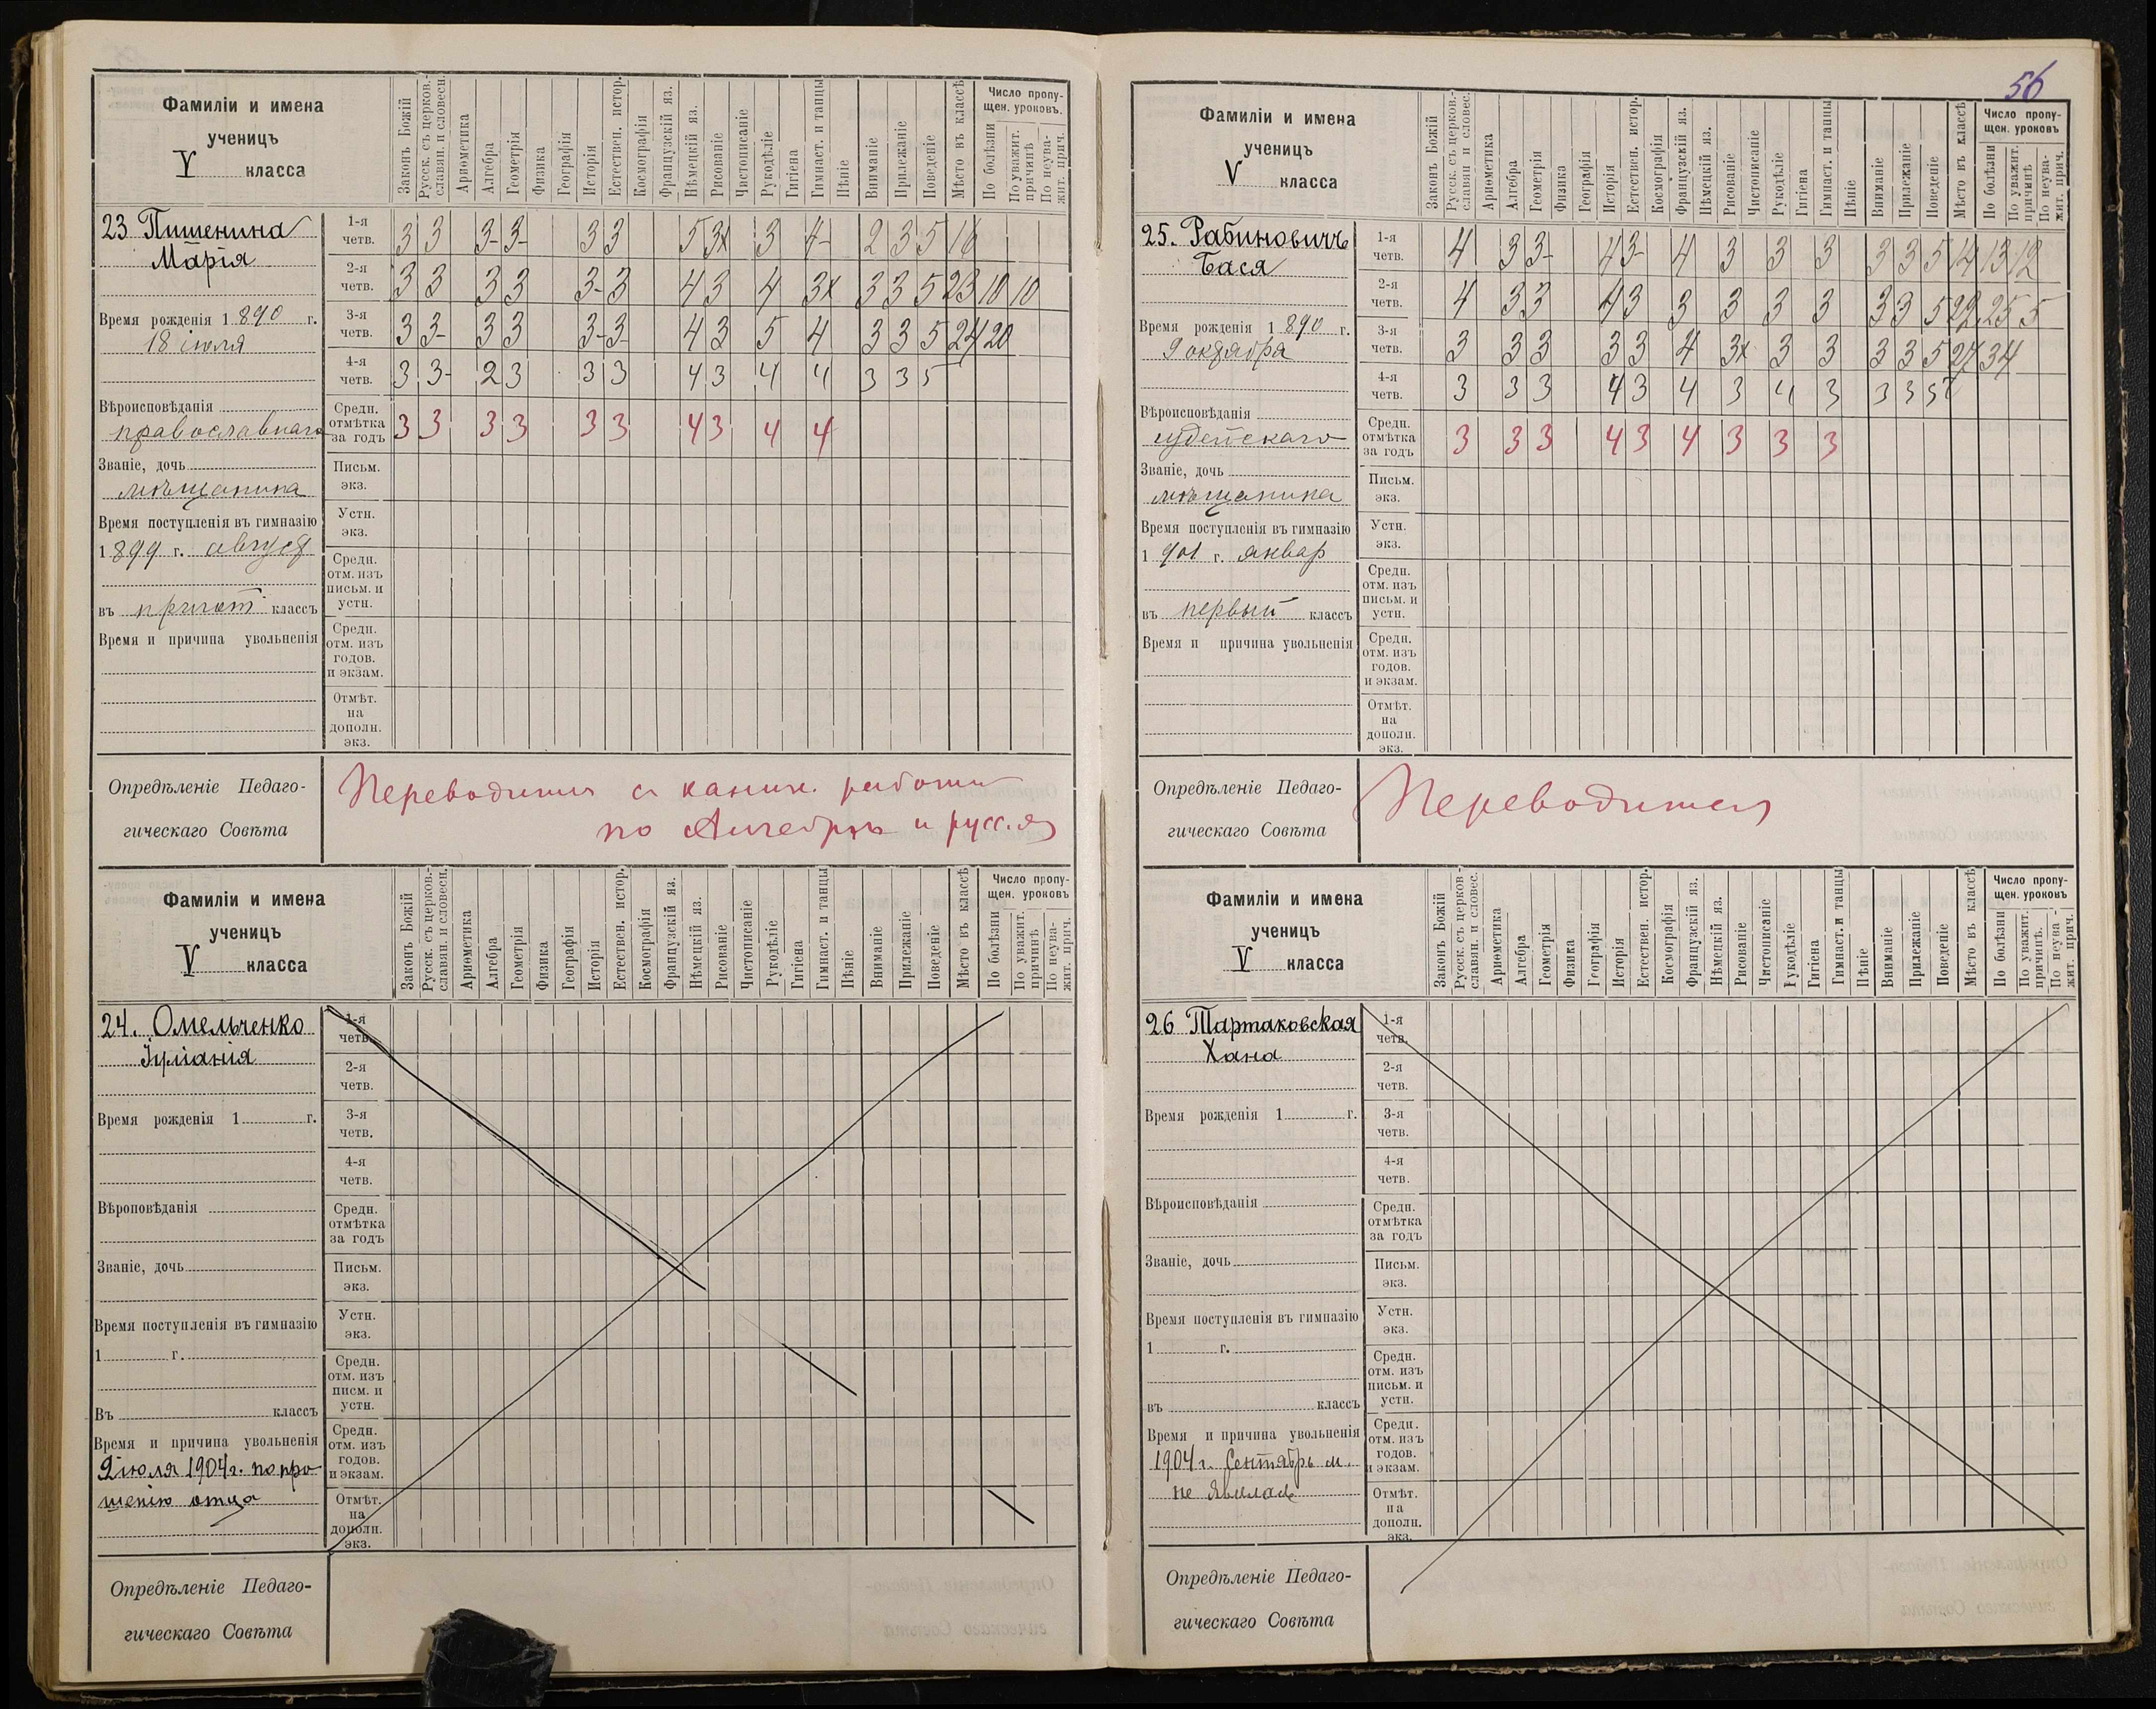 56
Фамиліи и имена
ученицъ
V класса
Законъ Божій
Русск. съ церков.-
славян. и словесн.
Ариѳметика
Алгебра
Геометрія
Физика
Географія
Исторія
Естествен. истор.
Космографія
Французскій яз.
Нѣмецкій яз.
Рисованіе
Чистописаніе
Рукодѣліе
Гигіена
Гимнаст. и танцы
Пѣніе
Вниманіе
Прилежаніе
Поведеніе
Мѣсто въ классѣ
Число пропу-
щен. уроковъ.
По болѣзни
По уважит.
причинѣ
По неува-
жит. прич.
23 Пишенина
Марія
Время рожденія 1890 г.
18 іюля
Вѣроисповѣданія
православнаго
Званіе, дочь
мѣщанина
Время поступленія въ гимназію
1899 г. август
въ пригот классъ
Время и причина увольненія
1-я четв. 3 3 3- 3- 3 3 5 3х 3 4- 2 3 5 16
2-я четв. 3 3 3 3 3- 3 4 3 4 3х 3 3 5 23 10 10
3-я четв. 3 3- 3 3 3- 3 4 3 5 4 3 3 5 24 20
4-я четв. 3 3- 2 3 3 3 4 3 4 4 3 3 5
Средн. отмѣтка за годъ 3 3 3 3 3 3 4 3 4 4
Письм.
экз.
Устн.
экз.
Средн.
отм. изъ
письм. и
устн.
Средн.
отм. изъ
годов.
и экзам.
Отмѣт.
на
дополн.
экз.
Опредѣленіе Педаго-
гическаго Совѣта
Переводится съ каник. работой
по Алгебрѣ и русс. яз
Фамиліи и имена
ученицъ
V класса
Законъ Божій
Русск. съ церков.-
славян. и словесн.
Ариѳметика
Алгебра
Геометрія
Физика
Географія
Исторія
Естествен. истор.
Космографія
Французскій яз.
Нѣмецкій яз.
Рисованіе
Чистописаніе
Рукодѣліе
Гигіена
Гимнаст. и танцы
Пѣніе
Вниманіе
Прилежаніе
Поведеніе
Мѣсто въ классѣ
Число пропу-
щен. уроковъ
По болѣзни
По уважит.
причинѣ
По неува-
жит. прич.
24. Омельченко
Іуліанія
Время рожденія 1 г.
Вѣроповѣданія
Званіе, дочь
Время поступленія въ гимназію
1 г.
Въ классъ
Время и причина увольненія
2 іюля 1904 г. по про
шенію отца
1-я
четв.
2-я
четв.
3-я
четв.
4-я
четв.
Средн.
отмѣтка
за годъ
Письм.
экз.
Устн.
экз.
Средн.
отм. изъ
писм. и
устн.
Средн.
отм. изъ
годов.
и экзам.
Отмѣт.
на
дополн.
экз.
Опредѣленіе Педаго-
гическаго Совѣта
Фамиліи и имена
ученицъ
V класса
Законъ Божій
Русск. съ церков.-
славян и словес.
Ариѳметика
Алгебра
Геометрія
Физика
Географія
Исторія
Естествен. истор.
Космографія
Французскій яз.
Нѣмецкій яз.
Рисованіе
Чистописаніе
Рукодѣліе
Гигіена
Гимнаст. и танцы
Пѣніе
Вниманіе
Прилежаніе
Поведеніе
Мѣсто въ классѣ
Число пропу-
щен. уроковъ
По болѣзни
По уважит.
причинѣ
По неува-
жит. прич.
25. Рабиновичъ
Бася
Время рожденія 1890 г.
9 октября
Вѣроисповѣданія
іудейскаго
Званіе, дочь
мѣщанина
Время поступленія въ гимназію
1901 г. январ
въ первый классъ
Время и причина увольненія
1-я четв. 4 3 3- 4 3- 4 3 3 3 3 3 5 14 13 12
2-я четв. 4 3 3 4 3 3 3 3 3 3 3 5 22 25 5
3-я четв. 3 3 3 3 3 4 3х 3 3 3 3 5 27 34
4-я четв. 3 3 3 4 3 4 3 4 3 3 3 5
Средн. отмѣтка за годъ 3 3 3 4 3 4 3 3 3
Письм.
экз.
Устн.
экз.
Средн.
отм. изъ
письм. и
устн.
Средн.
отм. изъ
годов.
и экзам.
Отмѣт.
на
дополн.
экз.
Опредѣленіе Педаго-
гическаго Совѣта
Переводится
Фамиліи и имена
ученицъ
V класса
Законъ Божій
Русск. съ церков-
славян. и словес.
Ариѳметика
Алгебра
Геометрія
Физика
Географія
Исторія
Естествен. истор.
Космографія
Французскій яз.
Нѣмецкій яз.
Рисованіе
Чистописаніе
Рукодѣліе
Гигіена
Гимнаст. и танцы
Пѣніе
Вниманіе
Прилежаніе
Поведеніе
Мѣсто въ классѣ
Число пропу-
щен. уроковъ
По болѣзни
По уважит.
причинѣ.
По неува-
жит. прич.
26 Тартаковская
Хана
Время рожденія 1 г.
Вѣроисповѣданія
Званіе, дочь
Время поступленія въ гимназію
1 г.
въ классъ
Время и причина увольненія
1904 г. Сентябрь м.
не явилась
1-я
четв.
2-я
четв.
3-я
четв.
4-я
четв.
Средн.
отмѣтка
за годъ
Письм.
экз.
Устн.
экз.
Средн.
отм. изъ
письм. и
устн.
Средн.
отм. изъ
годов.
и экзам.
Отмѣт.
на
дополн.
экз.
Опредѣленіе Педаго-
гическаго Совѣта